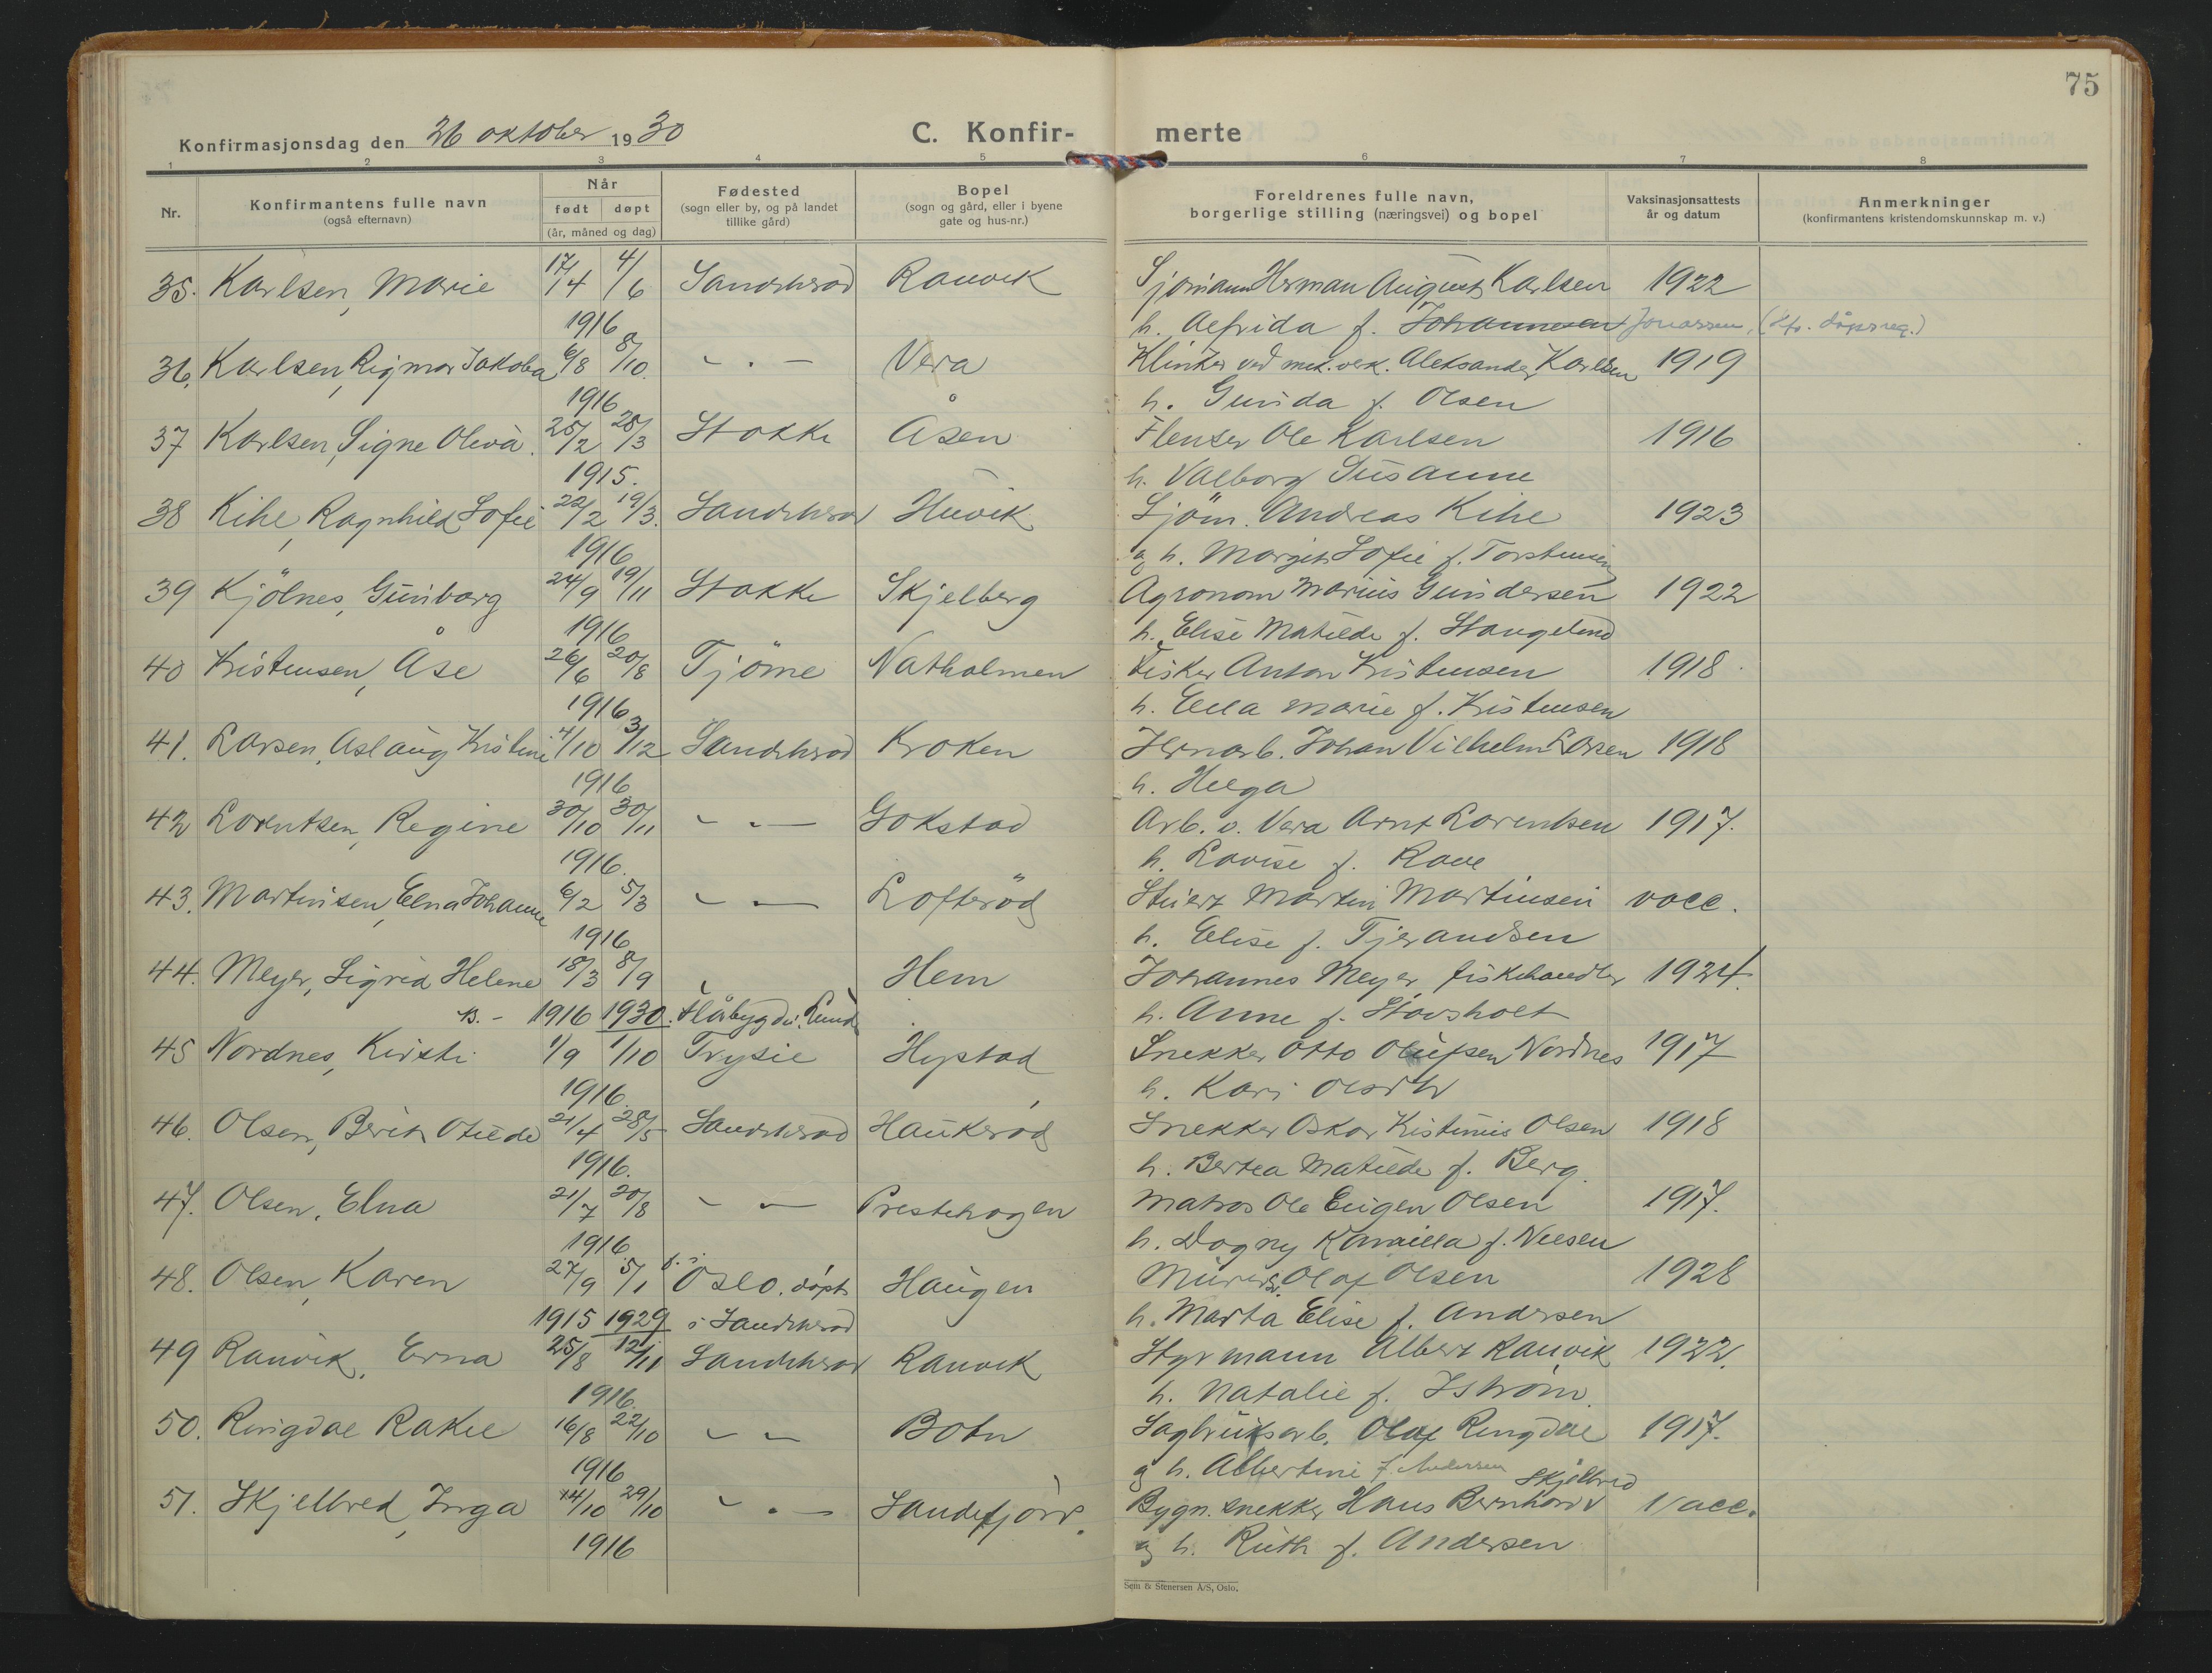 75
Konfirmasjonsdag den 26 oktober 1930
C. Konfir- merte
1 2 3 4 5 6 7 8
Nr.
Konfirmantens fulle navn
(også efternavn)
Når
født døpt
(år, måned og dag)
Fødested
(sogn eller by, og på landet
tillike gård)
Bopel
(sogn og gård, eller i byene
gate og hus-nr.)
Foreldrenes fulle navn,
borgerlige stilling (næringsvei) og bopel
Vaksinasjonsattests
år og datum
Anmerkninger
(konfirmantens kristendomskunnskap m. v.)
35. Karlsen, Marie 17/4 4/6 Sandeherad Ranvik Sjømann Herman August Karlsen 1922
1916 h. Alfrida f. Johannesen Jonassen, (Kfr. dåpsreg.)
36. Karlsen, Rigmor Jakoba 6/8 8/10. - . - Vera Klinker ved mek. verk. Aleksander Karlsen 1919
1916 h. Gunda f. Olsen
37 Karlsen, Signe Oliva. 25/2 28/3 Stokke Åsen Flenser Ole Karlsen 1916
1915. h. Valborg Susanne
38 Kihle, Ragnhild Sofie 22/2 19/3. Sandeherad Huvik Sjöm. Andreas Kihle 1923
1916 og h. Margit Sofie f. Torstensen
39 Kjölnes, Gunborg 24/9 19/11 Stokke Skjelberg Agronom Marius Gundersen 1922
1916 h. Elise Matilde f. Stangeland
40 Kristensen, Åse 26/6 20/8 Tjöme Natholmen Fisker Anton Kristensen 1918
1916 h. Ella Marie f. Kristensen
41. Larsen, Aslaug Kristine 4/10 3/12 Sandeherad Kroken Jernarb. Johan Vilhelm Larsen 1918
1916 h. Helga
42 Lorentsen, Regine 30/10 30/11 - . - Gokstad Arb. v. Vera Arnt Lorentsen 1917.
1916. h. Lovise f. Rove
43. Martinsen, Elna Johanne 6/2 5/3 - - Lofteröd Stuert Martin Martinsen vacc.
1916 h. Elise f. Tjerandsen
44. Meyer, Sigrid Helene 18/3 8/9 Hem Johannes Meyer, fiskehandler 1924.
1916 1930. h. Anne f. Stovsholt
45 Nordnes, Kirsti 1/9 1/10 Trysil Hystad Snekker Otto Olufsen Nordnes 1917
1916. h. Kari Olsdtr
46. Olsen, Berit Otilde 21/4 28/5 Sandeherad Haukeröd Snekker Oskar Kristinius Olsen 1918
1916. h. Bertea Matilde f. Berg.
47. Olsen, Elna 21/7 20/8 - - Prestehagen Matros Ole Eugen Olsen 1917.
1916 h. Dagny Kamilla f. Nilsen
48. Olsen, Karen 27/9 5/1 f. i Oslo. döpt Haugen Murer Olaf Olsen 1928
1915 1929 i Sandeherad h. Marta Elise f. Andersen
49 Ranvik, Erna 25/8 12/11 Sandeherad Ranvik Styrmann Albert Ranvik 1922.
1916. h. Natalie f. Istrøm.
50. Ringdal Rakel 16/8 22/10 - - Botn Sagbruksarb. Olaf Ringdal 1917.
1916 og h. Albertine f. Andersen
51. Skjelbred, Inga 14/10 29/10 - . - Sandefjord. Bygn. snekker Hans Bernhard Skjelbred Vacc.
1916 og h. Ruth f. Andersen
Sem & Stenersen A/S, Oslo.